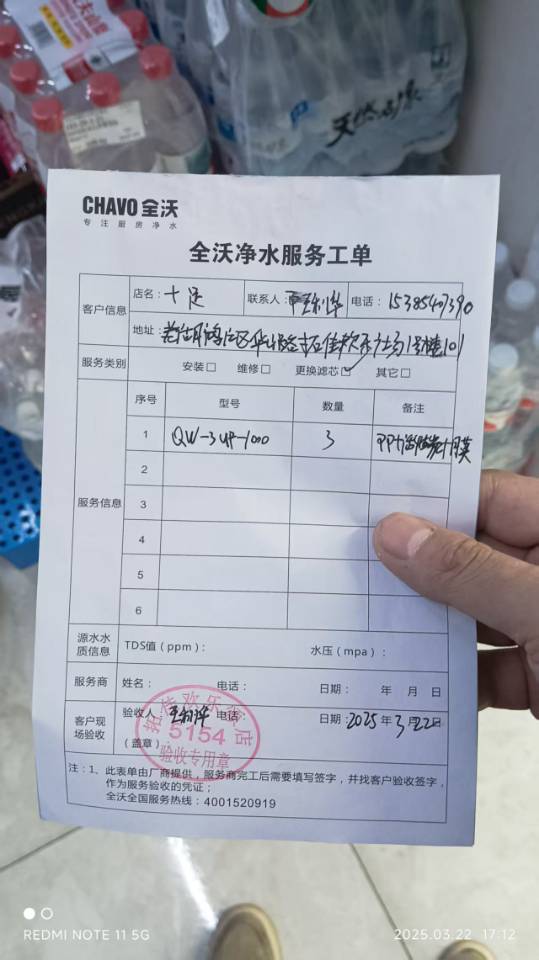 天然
CHAVO 全沃
专注厨房净水
全沃净水服务工单
客户信息
店名：十足 联系人： 电话：15385407390
地址：
服务类别 安装□ 维修□ 更换滤芯☑ 其它□
服务信息
序号 型号 数量 备注
1 QW-3UF-1000 3
2
3
4
5
6
源水水质信息 TDS值（ppm）： 水压（mpa）：
服务商 姓名： 电话： 日期： 年 月 日
客户现场验收
验收人 电话： 日期：2025年3月22日
（盖章）
欢乐 店
5154
验收专用章
注：1、此表单由厂商提供，服务商完工后需要填写签字，并找客户验收签字，
作为服务验收的凭证；
全沃全国服务热线：4001520919
REDMI NOTE 11 5G
2025.03.22 17:12